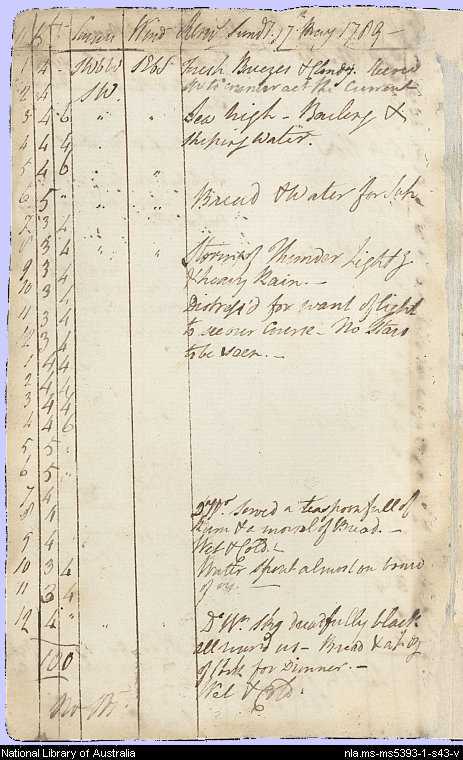 H K F Courses Wind Rem Sund. 17th May 1789 -
1 4 - SWbW SEbS Fresh Breezes & Cloudy. Steered
2 4 SW. to counteract the Current
3 4 6 " " Sea high - Baling &
4 4 4 " " shiping Water.
5 4 6 " "
6 5 " " " Bread & Water for Sup
7 3 4 " "
8 3 4 " " Storms of Thunder Light g
9 3 4 & heavy Rain. -
10 3 4 Distress'd for want of light
11 3 4 to see our Course - No Stars
12 3 4 to be seen. -
1 4 4
2 4 4
3 4 4
4 4 6
5 5 "
6 5 "
7 4
8 4 Do Wr. Served a teaspoonfull of
Rum & a morsel of Bread. -
9 4 Wet & Cold. -
10 3 4 Water Spout almost on board
11 3 4 of us. -
12 4 " " " Do Wr. Sky dreadfully black
all round us - Bread & at
100 of for Dinner. -
No Wet & Cold.
National Library of Australia nla.ms-ms5393-1-s43-v